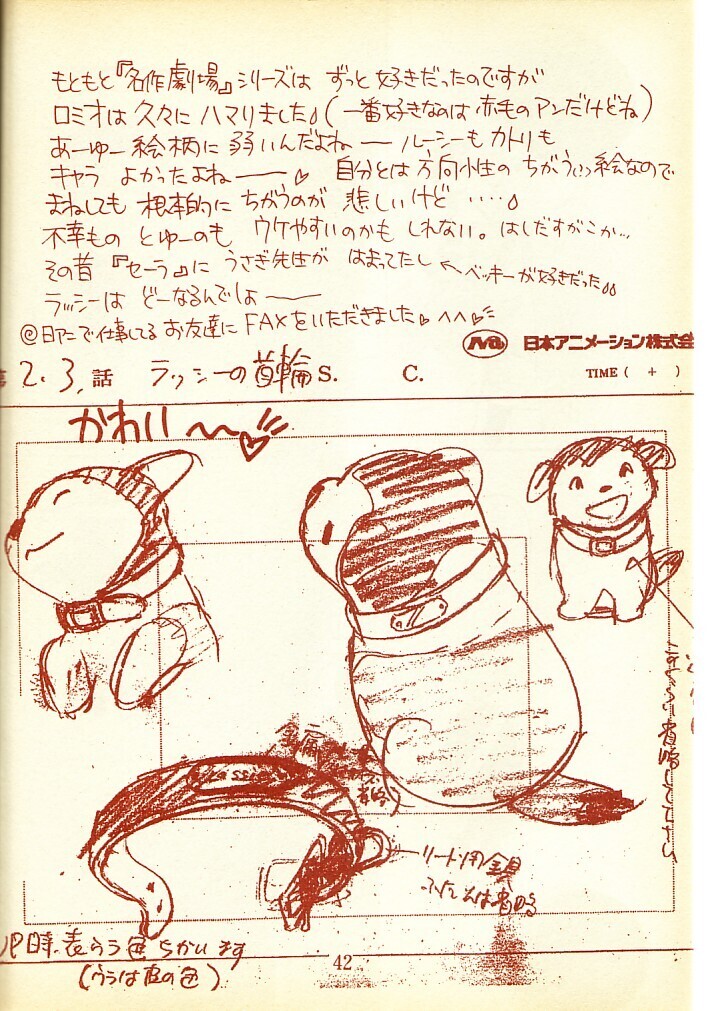 もともと『名作劇場』シリーズは ずっと好きだったのですが
ロミオは久々に ハマりました。(一番好きなのは赤毛のアンだけどね)
あーゆー絵柄に弱いんだよねー ルーシーもカトリも
キャラ よかったよねー♡ 自分とは方向性のちがう絵なので
まねしても 根本的に ちがうのが 悲しいけど ‥‥。
不幸もの とゆーのも ウケやすいのかも しれない。はしだすがこか…
その昔『セーラ』に うさぎ先生が はまってたし ←ベッキーが好きだった。
ラッシーは どーなるんでしょ〜
@日アニで仕事してる お友達に FAXをいただきました♡ ^^♡
日本アニメーション株式会
2.3.話 ラッシーの首輪 S. C. TIME ( + )
かわい〜〜♡
金属
Lassie
省略
リード用金具
ふだんは省略
表 うら 色 ちがいます
(ウラは皮の色)
42